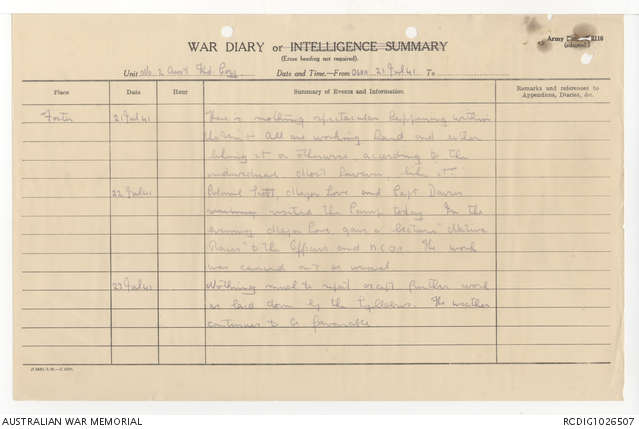 WAR DIARY or INTELLIGENCE SUMMARY
(Erase heading not required).
Army
(adapted)
Unit No. 2 Date and Time—From 0600 21 Jul 41 To
Place Date Hour Summary of Events and Information. Remarks and references to Appendices, Diaries, &c.
Foster 21 Jul 41 There is nothing spectacular happening within
All are working hard and either
liking it or otherwise, according to the
individual. Most however, like it.
22 Jul 41 Colonel Scott, Major Love and Capt Davis
visited the Camp today. In the
evening Major Love gave a lecture "Native
Races" to the Officers and NCOs. The work
was carried out as usual
23 Jul 41 Nothing much to report except further work
as laid down by the Syllabus. The weather
continues to be favourable
AUSTRALIAN WAR MEMORIAL RCDIG1026507